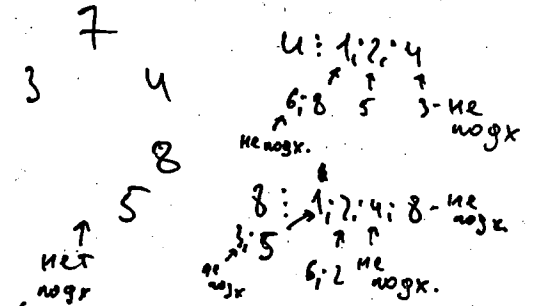 7
3 4
8
5
нет
подх
4 ⋮ 1; 2; 4
6; 8 5 3 - не
подх
не подх.
8 ⋮ 1; 2; 4; 8 - не
подх.
3; 5
не
подх
6; 2 не
подх.